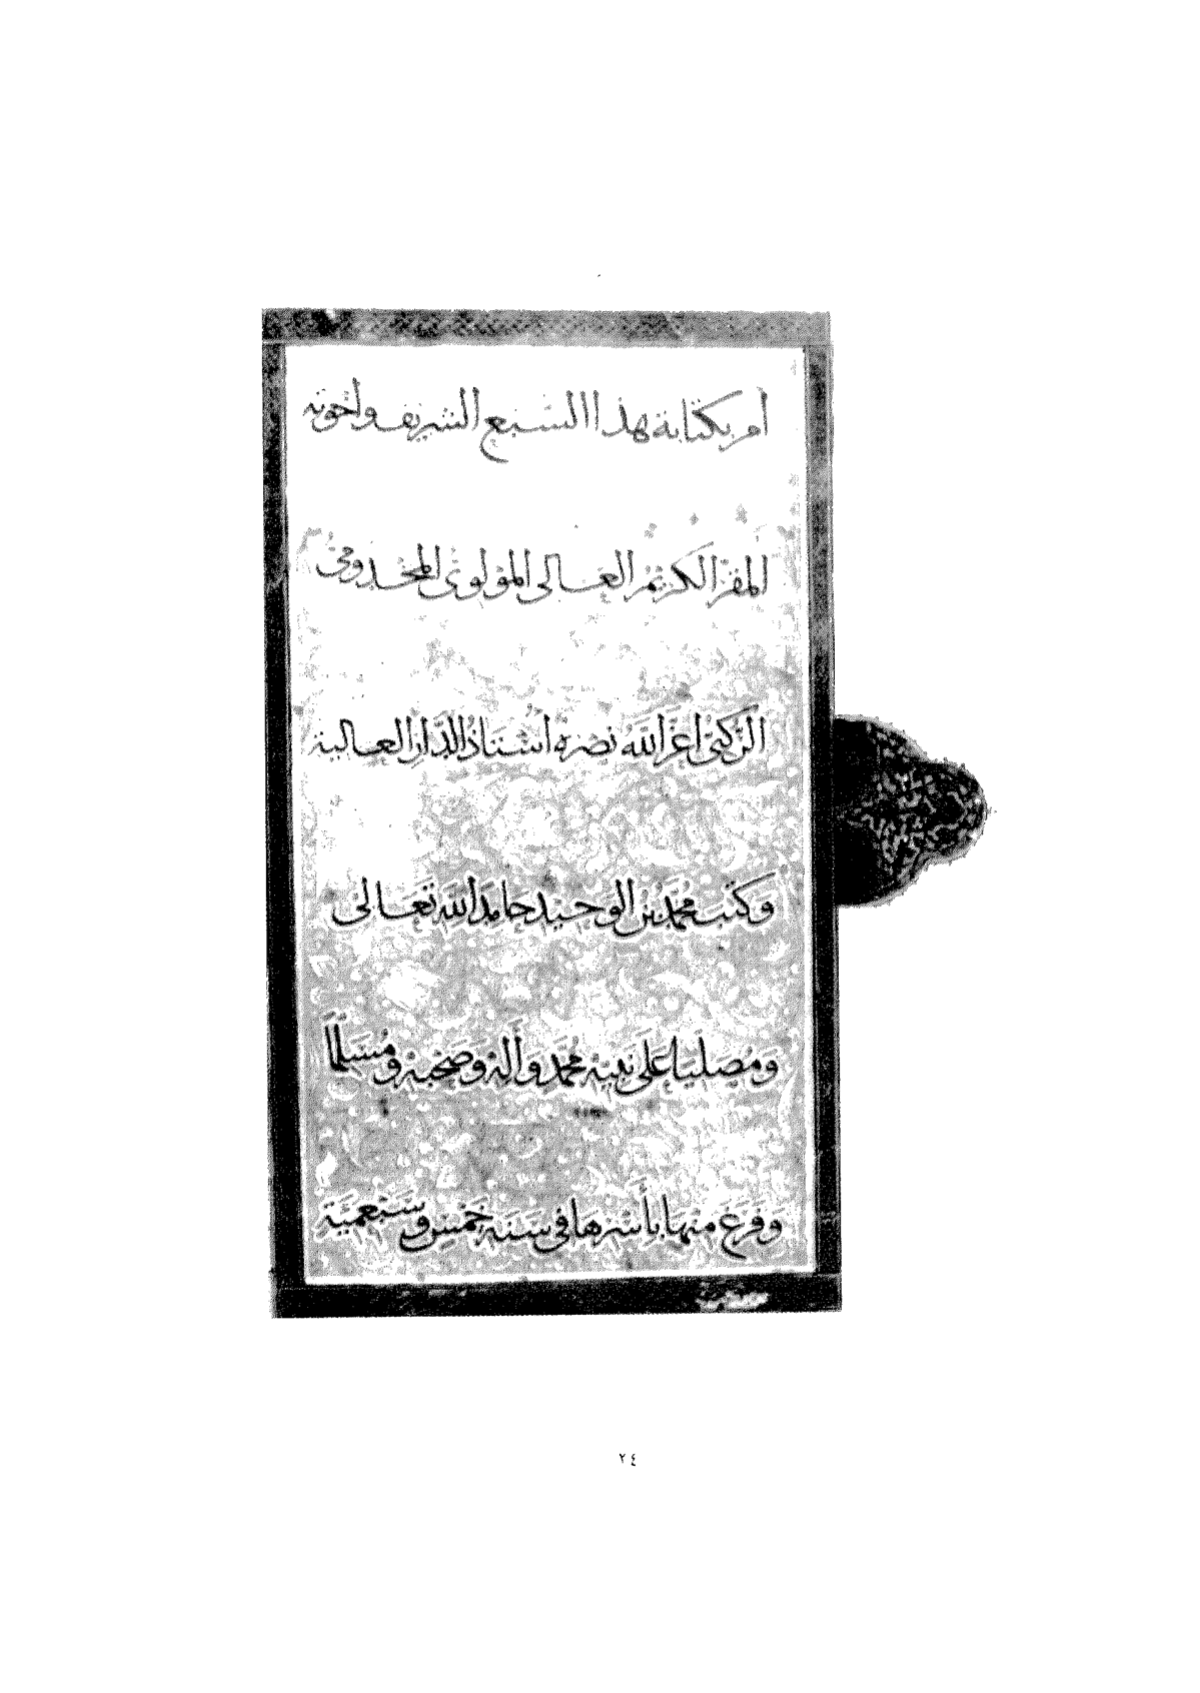 أمر بكتابة هذا السبع الشريف واخوته
المقر الكريم العالى المولوى المخدومى
الركنى اعز الله نصره استاذ الدار العالية
وكتب محمد بن الوحيد حامد الله تعالى
ومصليا على نبيه محمد وأله وصحبه ومسلما
وفرغ منها بأسرها فى سنة خمس وسبعمية
٢٤